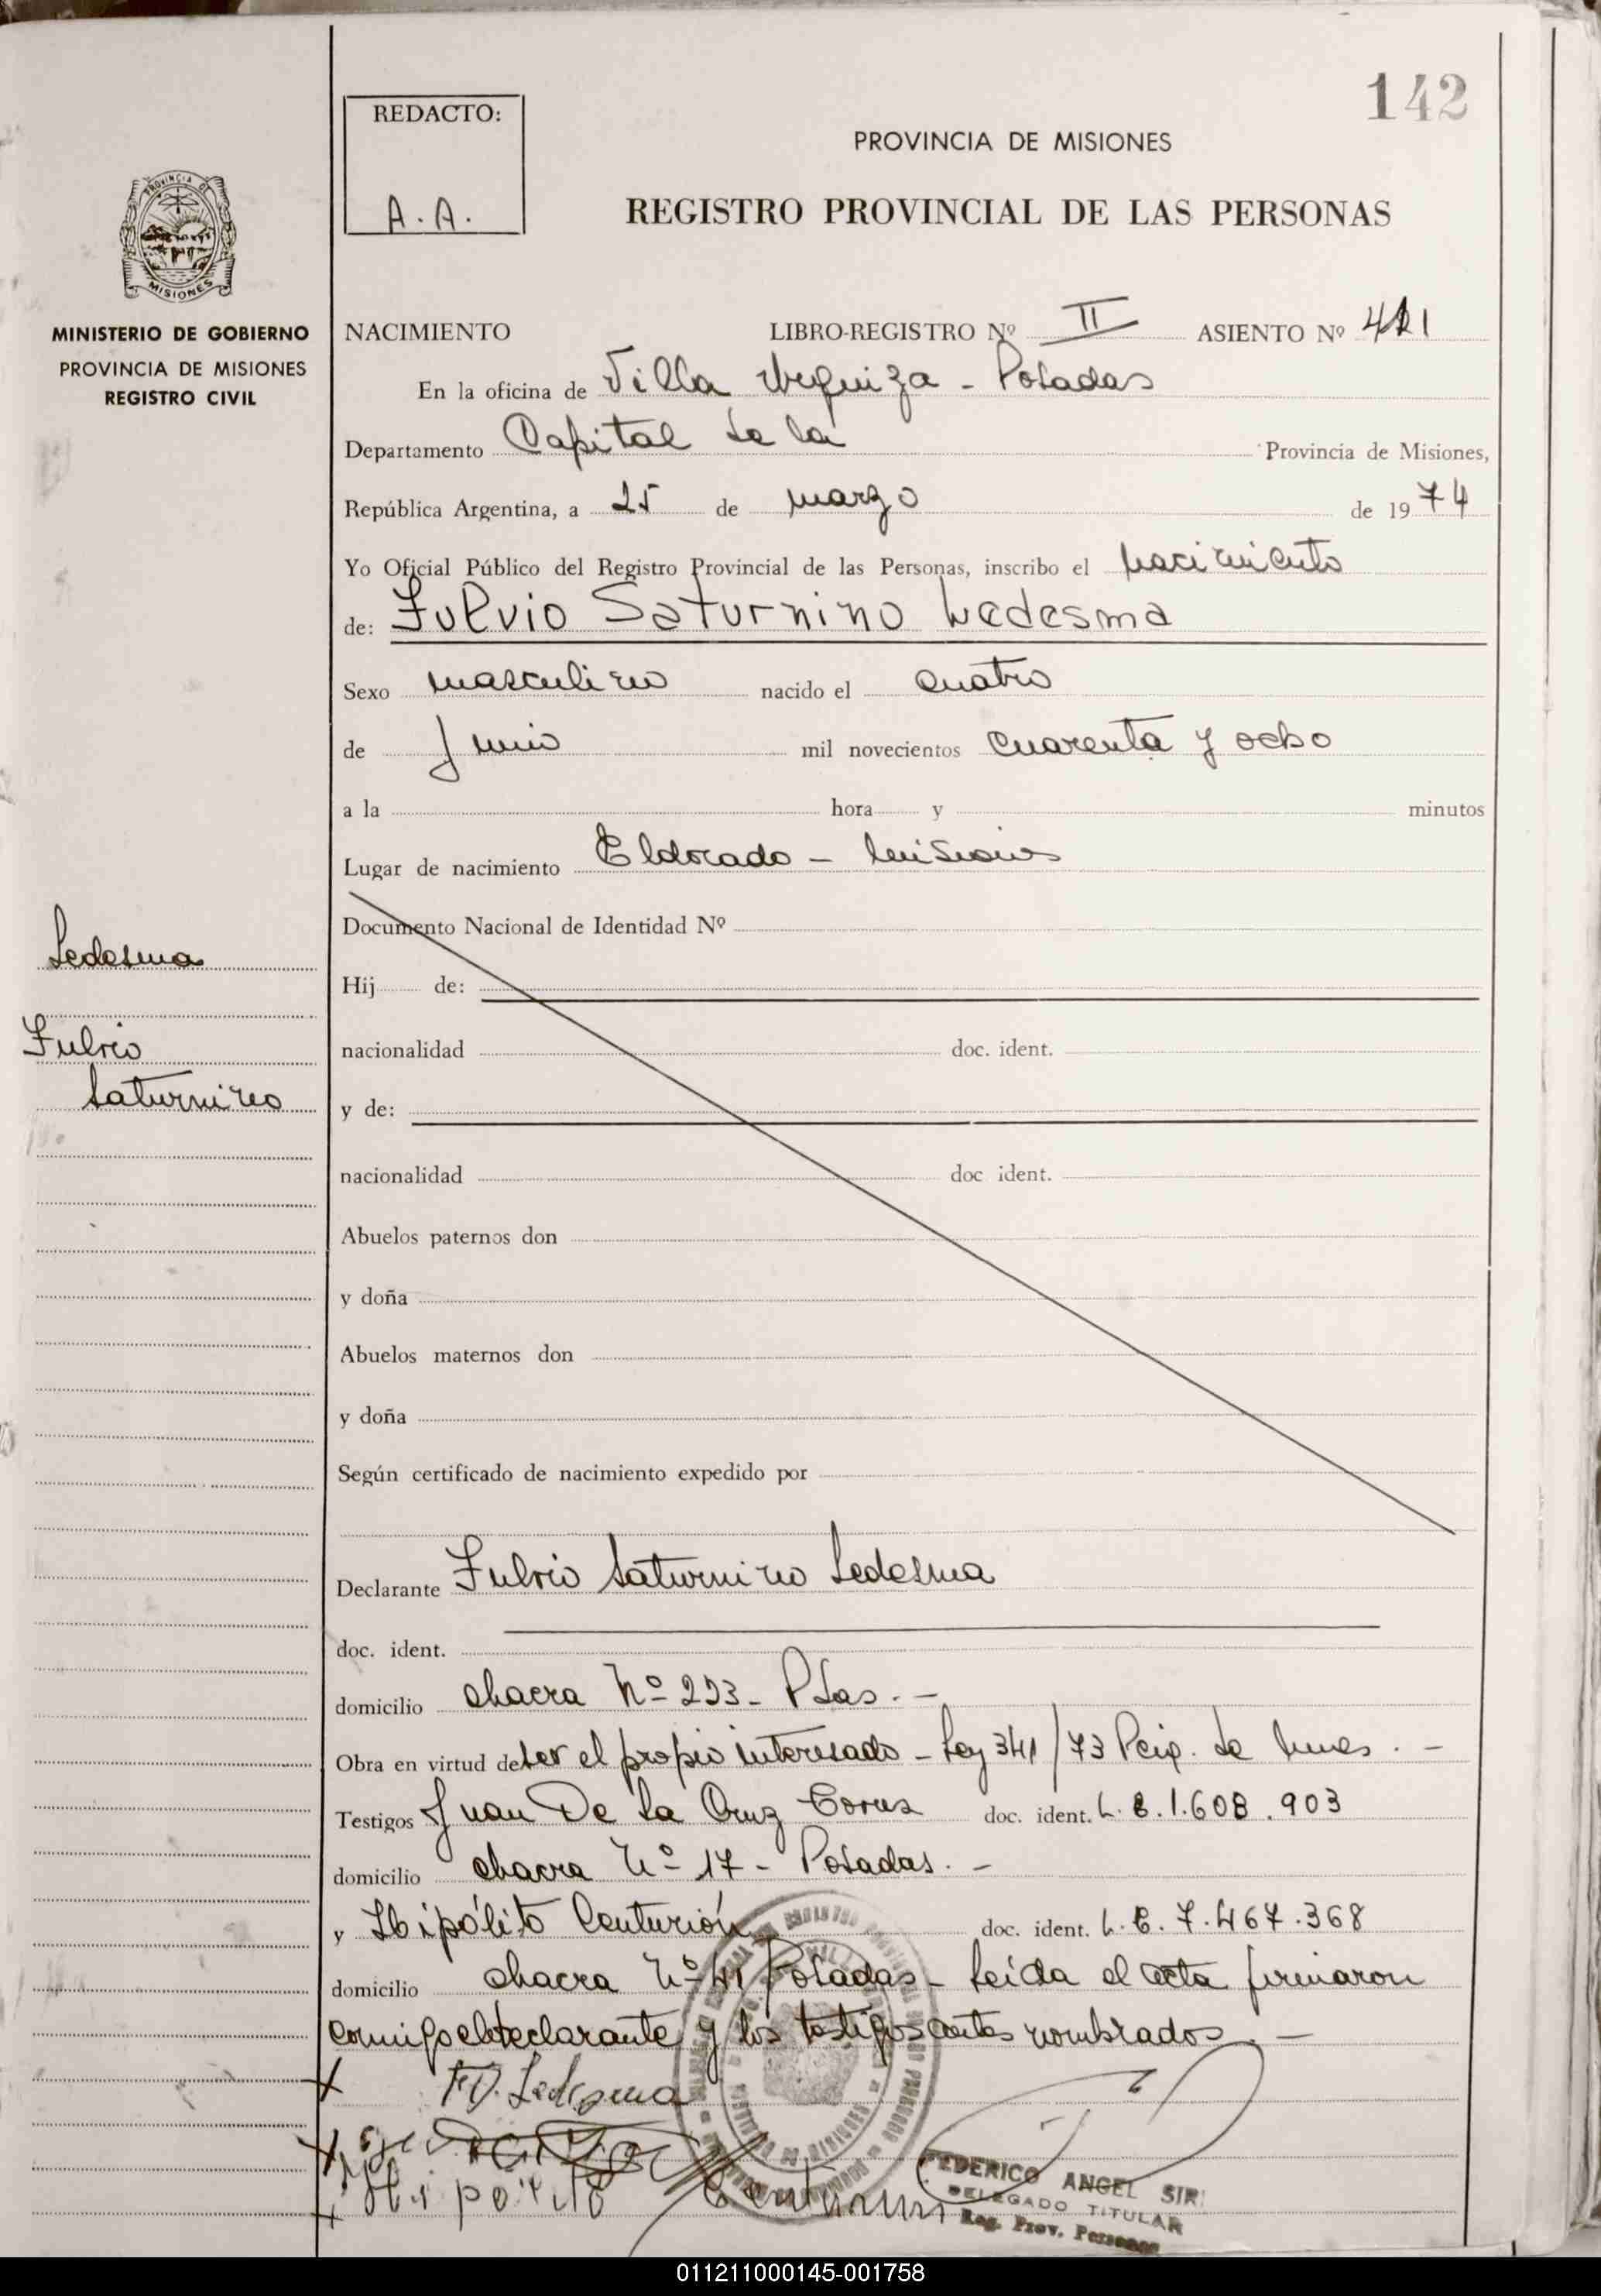 142
REDACTO:
A.A.
PROVINCIA DE MISIONES
REGISTRO PROVINCIAL DE LAS PERSONAS
PROVINCIA DE
MISIONES
MINISTERIO DE GOBIERNO
PROVINCIA DE MISIONES
REGISTRO CIVIL
NACIMIENTO LIBRO-REGISTRO Nº II ASIENTO Nº 421
En la oficina de Villa Urquiza - Posadas
Departamento Capital de la Provincia de Misiones,
República Argentina, a 25 de marzo de 1974
Yo Oficial Público del Registro Provincial de las Personas, inscribo el nacimiento
de: Fulvio Saturnino Ledesma
Sexo masculino nacido el cuatro
de Junio mil novecientos cuarenta y ocho
a la hora y minutos
Lugar de nacimiento Eldorado - Misiones
Documento Nacional de Identidad Nº
Hij de:
nacionalidad doc. ident.
y de:
nacionalidad doc ident.
Abuelos paternos don
y doña
Abuelos maternos don
y doña
Según certificado de nacimiento expedido por
Ledesma
Fulvio
Saturnino
Declarante Fulvio Saturnino Ledesma
doc. ident.
domicilio chacra Nº 223- Pdas. -
Obra en virtud de ser el propio interesado - Ley 341/73 -
Testigos Juan De La Cruz doc. ident. L.E. 1.608.903
domicilio chacra Nº 17 - Posadas. -
y Hipólito Centurión doc. ident. L.E. 7.467.368
domicilio chacra Nº 41 Posadas - Leída el acta firmaron
conmigo el declarante y los testigos antes nombrados. -
F.D. Ledesma
Hipolito Centurion
FEDERICO ANGEL SIR
DELEGADO TITULAR
Reg. Prov. Personas
011211000145-001758